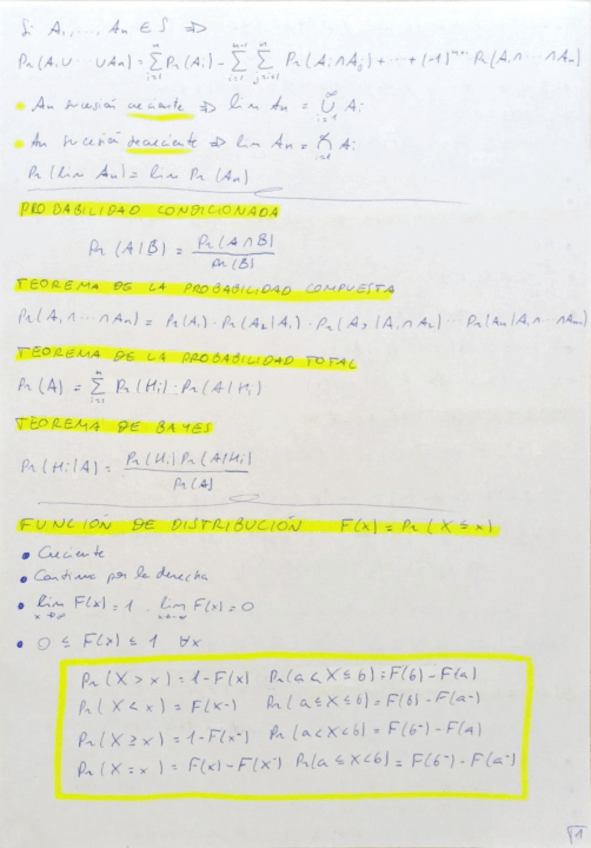 Si A₁, ..., An ∈ S ⇒
Pr(A₁∪ ··· ∪An) = ∑ᵢ₌₁ⁿ Pr(Aᵢ) - ∑ᵢ₌₁ⁿ⁻¹ ∑ⱼ₌ᵢ₊₁ⁿ Pr(Aᵢ∩Aⱼ) + ··· + (-1)ⁿ⁺¹ Pr(A₁∩ ··· ∩An)
• An sucesión creciente ⇒ lim An = ∪ᵢ₌₁^∞ Aᵢ
• An sucesión decreciente ⇒ lim An = ∩ᵢ₌₁^∞ Aᵢ
Pr(lim An) = lim Pr(An)
PROBABILIDAD CONDICIONADA
Pr(A|B) = Pr(A∩B) / Pr(B)
TEOREMA DE LA PROBABILIDAD COMPUESTA
Pr(A₁∩ ··· ∩An) = Pr(A₁) · Pr(A₂|A₁) · Pr(A₃|A₁∩A₂) ··· Pr(An|A₁∩ ··· ∩An-1)
TEOREMA DE LA PROBABILIDAD TOTAL
Pr(A) = ∑ᵢ₌₁ⁿ Pr(Hᵢ) · Pr(A|Hᵢ)
TEOREMA DE BAYES
Pr(Hᵢ|A) = Pr(Hᵢ) Pr(A|Hᵢ) / Pr(A)
FUNCIÓN DE DISTRIBUCIÓN F(x) = Pr(X ≤ x)
• Creciente
• Continua por la derecha
• lim x→∞ F(x) = 1 . lim x→-∞ F(x) = 0
• 0 ≤ F(x) ≤ 1 ∀x
Pr(X > x) = 1 - F(x) Pr(a < X ≤ b) = F(b) - F(a)
Pr(X < x) = F(x⁻) Pr(a ≤ X ≤ b) = F(b) - F(a⁻)
Pr(X ≥ x) = 1 - F(x⁻) Pr(a < X < b) = F(b⁻) - F(a)
Pr(X = x) = F(x) - F(x⁻) Pr(a ≤ X < b) = F(b⁻) - F(a⁻)
1